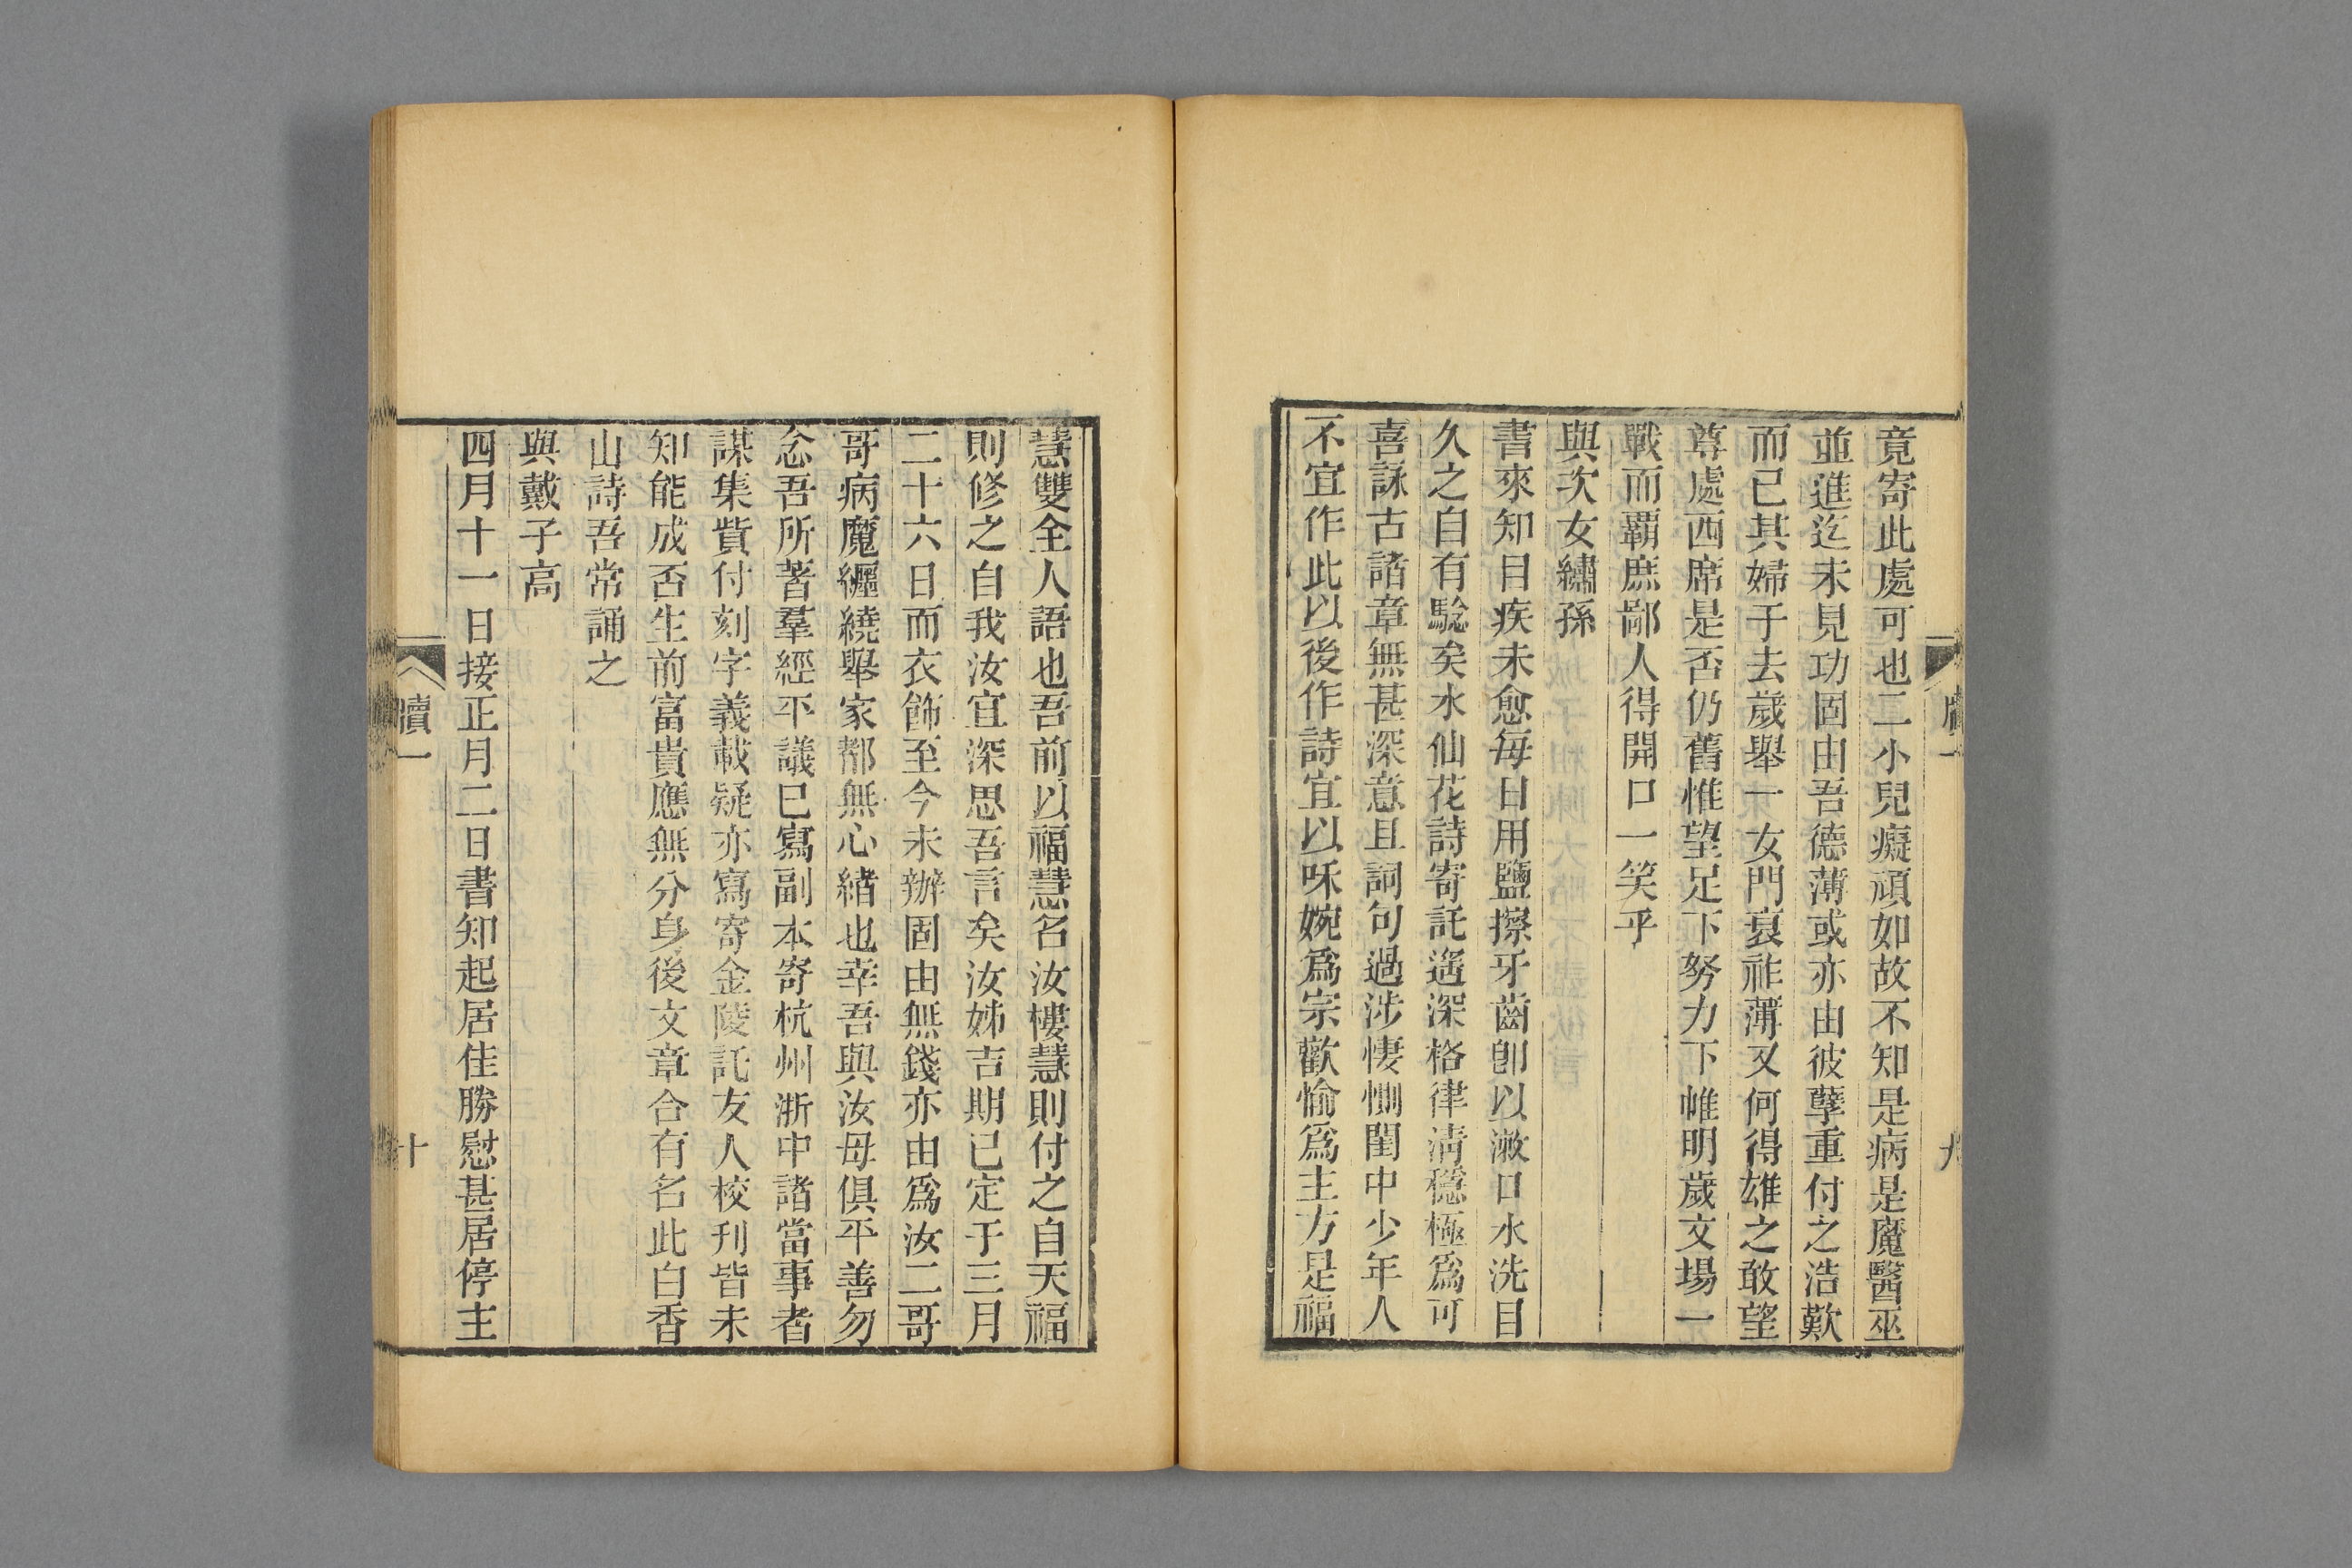 竟寄此處可也二小兒癡頑如故不知是病是魔醫巫
並進迄未見功固由吾德薄或亦由彼孽重付之浩歎
而已其婦于去歲舉一女門衰祚薄又何得雄之敢望
尊處西席是否仍舊惟望足下努力下帷明歲文場一
戰而霸庶鄙人得開口一笑乎
與次女繡孫
書來知目疾未愈每日用鹽擦牙齒卽以漱口水洗目
久之自有騐矣水仙花詩寄託遙深格律清穩極爲可
喜詠古諸章無甚深意且詞句過涉悽惻閨中少年人
不宜作此以後作詩宜以和婉爲宗歡愉爲主方是福
慧雙全人語也吾前以福慧名汝樓慧則付之自天福
則修之自我汝宜深思吾言矣汝姊吉期已定于三月
二十六日而衣飾至今未辦固由無錢亦由爲汝二哥
哥病魔纏繞舉家都無心緒也幸吾與汝母俱平善勿
念吾所著羣經平議已寫副本寄杭州浙中諸當事者
謀集貲付刻字義載疑亦寫寄金陵託友人校刊皆未
知能成否生前富貴應無分身後文章合有名此白香
山詩吾常誦之
與戴子高
四月十一日接正月二日書知起居佳勝慰甚居停主
牘一
十